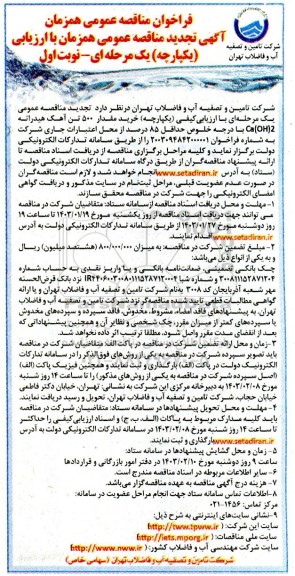 فراخوان مناقصه عمومی همزمان
آگهی تجدید مناقصه عمومی همزمان با ارزیابی
(یکپارچه) یک مرحله‌ای – نوبت اول
شرکت تامین و تصفیه
آب و فاضلاب تهران
شرکت تامین و تصفیه آب و فاضلاب تهران درنظر دارد تجدید مناقصه عمومی
یک مرحله‌ای با ارزیابی کیفی (یکپارچه) خرید مقدار ۵۰۰ تن آهک هیدراته
Ca(OH)2 با درجه خلوص حداقل ۸۵ درصد از محل اعتبارات جاری شرکت
به شماره فراخوان را از طریق سامانه تدارکات الکترونیکی
دولت برگزار نماید و کلیه مراحل برگزاری مناقصه از دریافت اسناد مناقصه تا
ارائه پیشنهاد مناقصه‌گران از طریق درگاه سامانه تدارکات الکترونیکی دولت
(ستاد) به آدرس www.setadiran.ir انجام خواهد شد و لازم است مناقصه‌گران
در صورت عدم عضویت قبلی، مراحل ثبت‌نام در سایت مذکور و دریافت گواهی
امضای الکترونیکی را جهت شرکت در مناقصه محقق سازند.
۱- مهلت و محل دریافت اسناد مناقصه ازسامانه ستاد: متقاضیان شرکت در مناقصه
می توانند جهت دریافت اسناد مناقصه از روز یکشنبه مورخ ۱۴۰۳/۰۱/۱۹ تا ساعت ۱۹
روز دوشنبه مورخ ۱۴۰۳/۰۱/۲۷ از طریق سامانه تدارکات الکترونیکی دولت به آدرس
www.setadiran.ir اقدام نمایند.
۲- مبلغ تضمین شرکت در مناقصه: به میزان ۸۰۰/۰۰۰/۰۰۰ (هشتصد میلیون) ریال
و به یکی از انواع ذیل می‌باشد:
چک بانکی تضمینی، ضمانت‌نامه بانکی و یا واریز نقدی به حساب شماره
نزد بانک قرض‌الحسنه
مهر شعبه آذربایجان کد ۳۰۰۸ به‌نام شرکت تامین و تصفیه آب و فاضلاب تهران و یا ارائه
گواهی مطالبات قطعی تایید شده مناقصه‌گر نزد شرکت تامین و تصفیه آب و فاضلاب
تهران. به پیشنهادهای فاقد امضاء، مشروط، مخدوش، فاقد سپرده و سپرده‌های مخدوش
یا سپرده‌های کمتر از میزان مقرر، چک شخصی و نظایر آن و همچنین پیشنهاداتی که
بعد از انقضای مدت مقرر واصل شود، مطلقا ترتیب اثر داده نخواهد شد.
۳- زمان و محل ارائه تضمین شرکت در مناقصه در پاکت الف: متقاضیان شرکت در مناقصه
باید تصویر سپرده شرکت در مناقصه به یکی از روش‌های فوق‌الذکر را در سامانه تدارکات
الکترونیک دولت در پاکت (الف) بارگذاری و ثبت نمایند و همچنین فیزیک پاکت (الف)
(اصل سپرده شرکت در مناقصه به یکی از روش‌های فوق‌الذکر) را تا ساعت ۱۴ روز شنبه
مورخ ۱۴۰۳/۰۲/۰۸ به دبیرخانه مرکزی این شرکت به نشانی: تهران، خیابان دکتر فاطمی
خیابان حجاب، شرکت تامین و تصفیه آب و فاضلاب تهران، تحویل و رسید دریافت نمایند.
۴- مهلت و محل تحویل پیشنهادها در سامانه ستاد: متقاضیان شرکت در مناقصه
باید کلیه مدارک مربوط به پاکات (الف، ب، ج) و اسناد ارزیابی کیفی را حداکثر
تا ساعت ۱۴ روز شنبه مورخ ۱۴۰۳/۰۲/۰۸ در سامانه تدارکات الکترونیکی دولت به آدرس
www.setadiran.ir بارگذاری و ثبت نمایند.
۵- زمان و محل گشایش پیشنهادها در سامانه ستاد:
ساعت ۹ روز دوشنبه مورخ ۱۴۰۳/۰۲/۱۰ در دفتر امور بازرگانی و قراردادها
۶- سایر اطلاعات مربوطه در اسناد مناقصه مندرج است.
۷- هزینه درج آگهی مناقصه به عهده مناقصه‌گزار می‌باشد.
۸- اطلاعات تماس سامانه ستاد جهت انجام مراحل عضویت در سامانه:
مرکز تماس: ۱۴۵۶-۰۲۱
۹- نشانی سایت‌های اینترنتی به شرح ذیل:
سایت این شرکت: (http://www.tpww.ir)
سایت ملی مناقصات: (http://iets.mporg.ir)
سایت شرکت مهندسی آب و فاضلاب کشور: (http://www.nww.ir)
شرکت تامین و تصفیه آب و فاضلاب تهران (سهامی خاص)